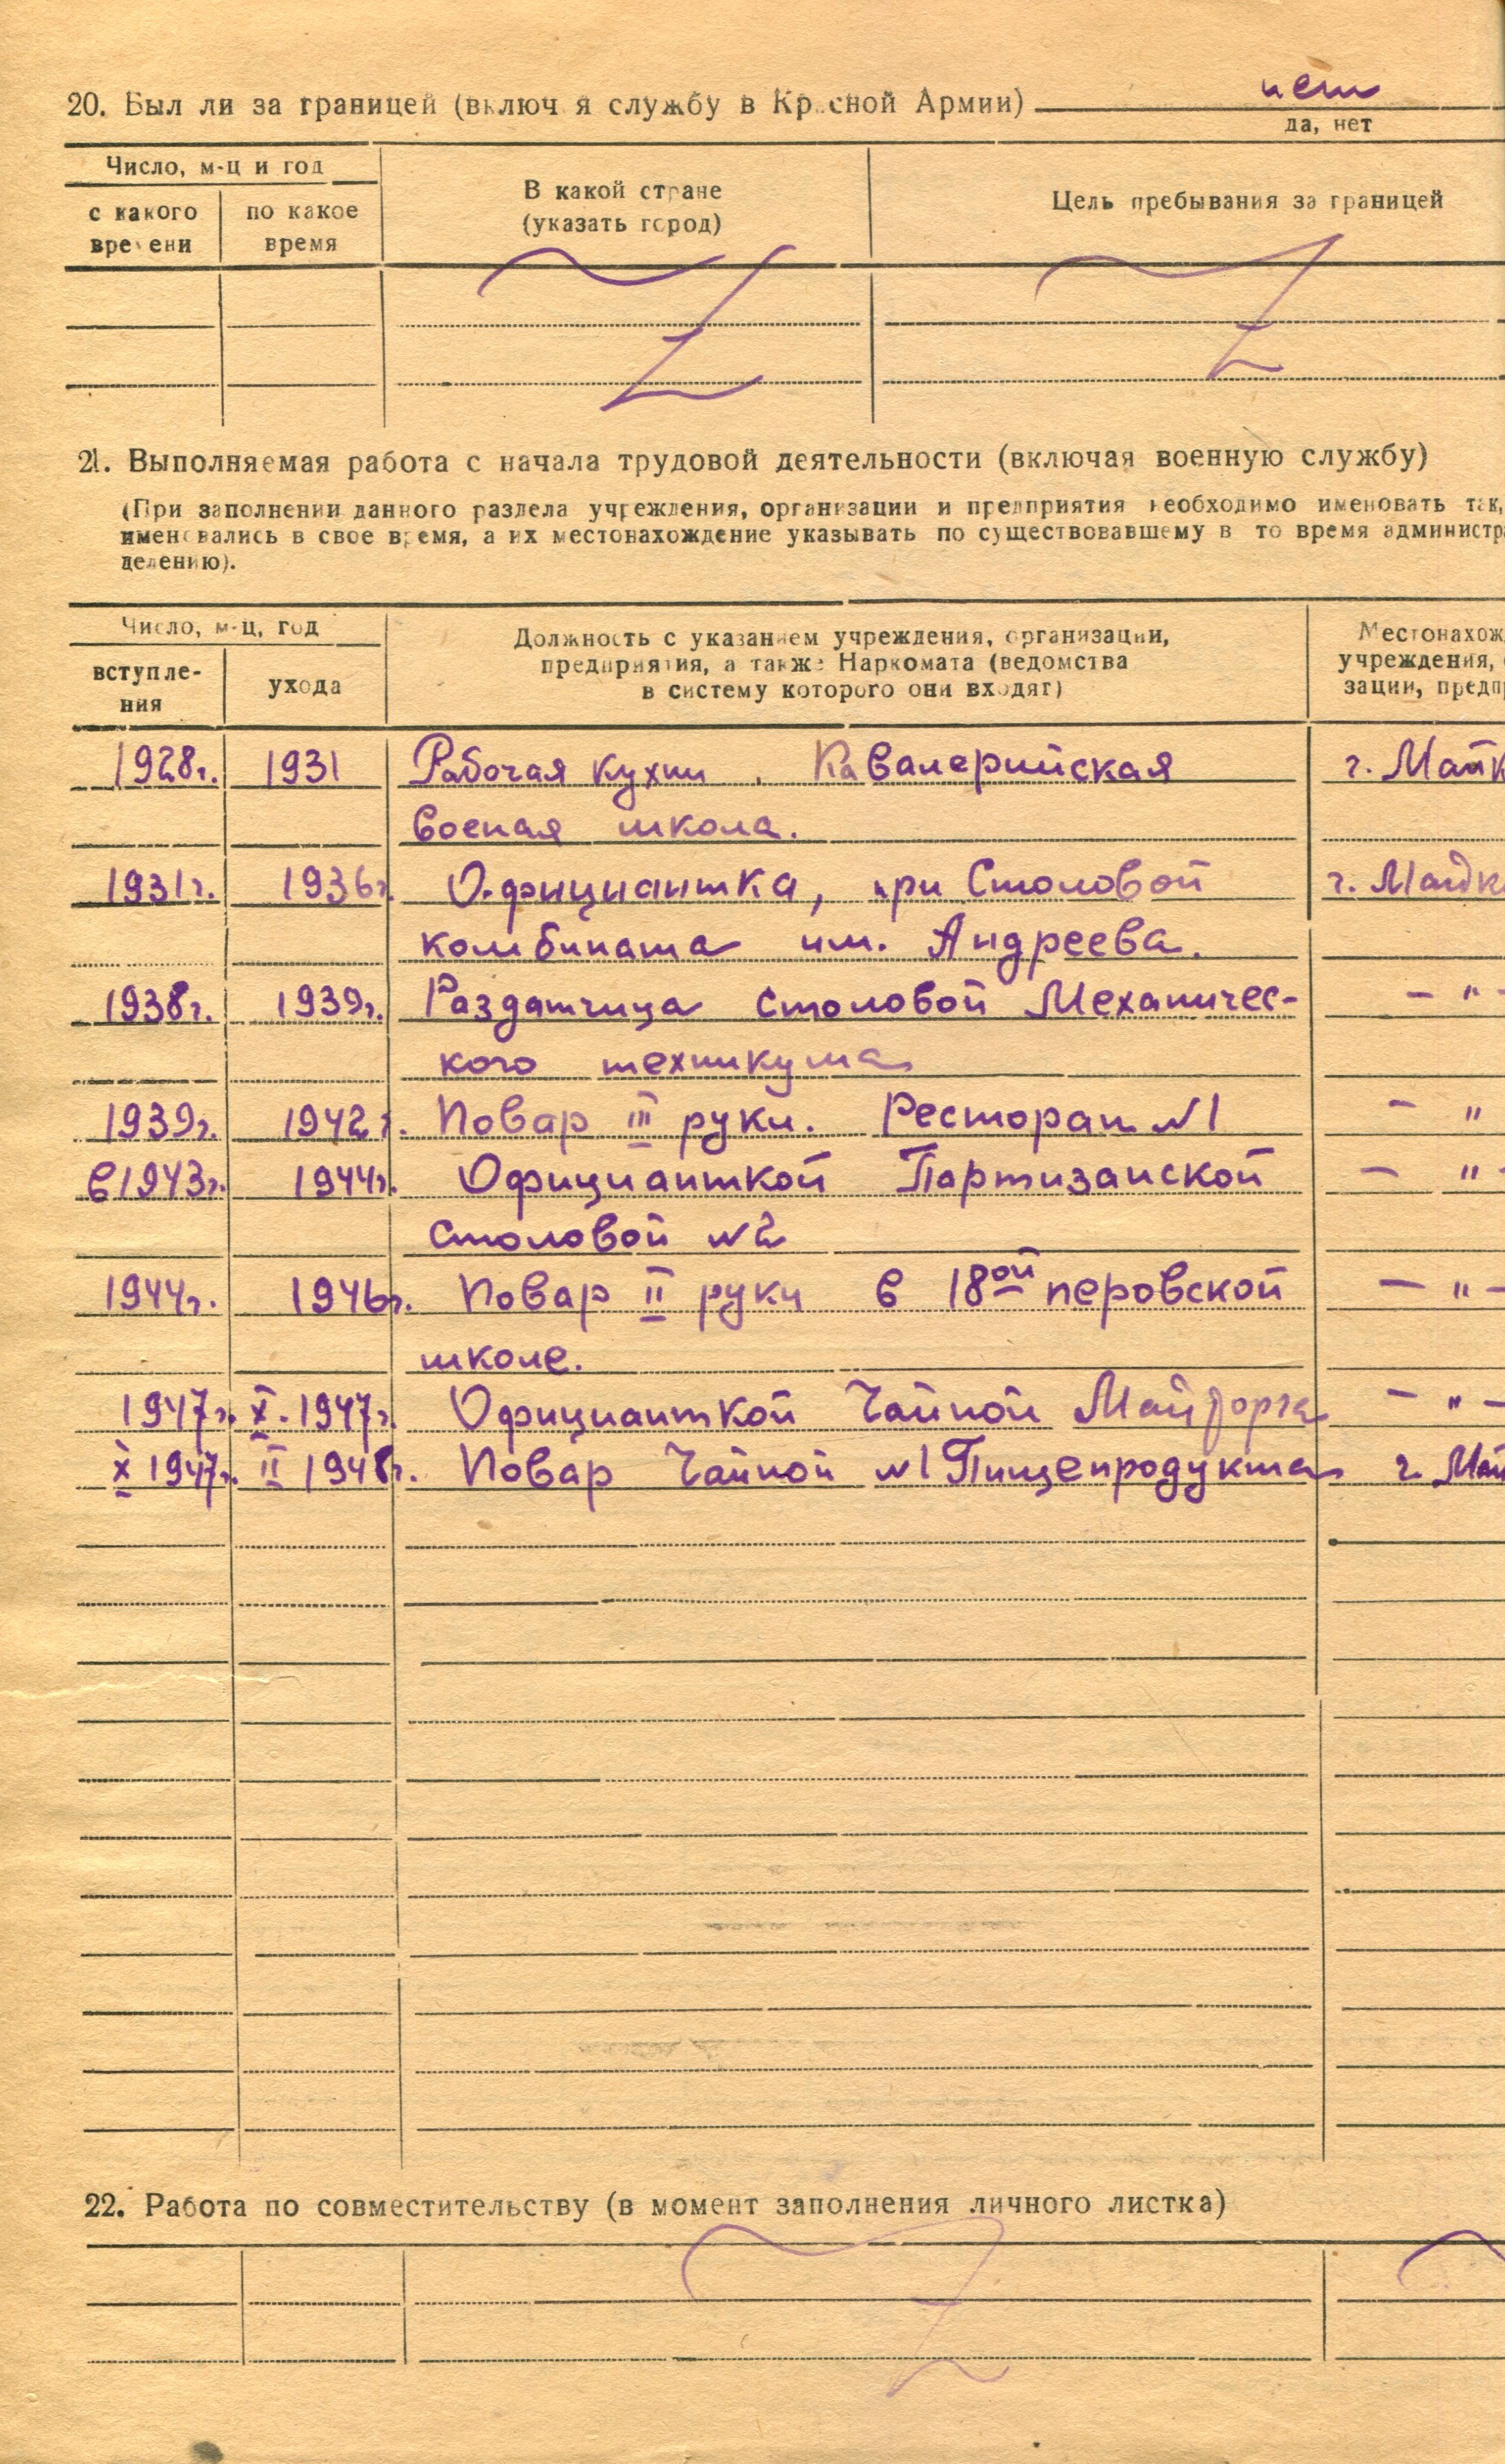 20. Был ли за границей (включ я службу в Кр сной Армии) нет
да, нет
Число, м-ц и год
с какого времени
по какое время
В какой стране
(указать город)
Цель пребывания за границей
21. Выполняемая работа с начала трудовой деятельности (включая военную службу)
(При заполнении данного раздела учреждения, организации и предприятия необходимо именовать так,
именовались в свое время, а их местонахождение указывать по существовавшему в то время администр
делению).
Число, м-ц, год
вступле-
ния
ухода
Должность с указанием учреждения, организации,
предприятия, а также Наркомата (ведомства
в систему которого они входят)
Местонахож
учреждения,
зации, предп
1928г. 1931 Рабочая кухни. Кавалерийская г. Майк
военая школа.
1931г. 1936г Официантка, при Столовой г. Майк
комбината им. Андреева.
1938г. 1939г. Раздатчица столовой Механичес- – " –
кого техникума
1939г. 1942г. Повар III руки. Ресторан №1 – "
в 1943г. 1944г. Официанткой Партизанской – " –
столовой №2
1944г. 1946г. Повар II руки в 18ой перовской – " –
школе.
1947г. X. 1947г. Официанткой Чайной Майгорга – " –
X 1947г. II 1948г. Повар Чайной №1 Пищепродукта г. Май
22. Работа по совместительству (в момент заполнения личного листка)